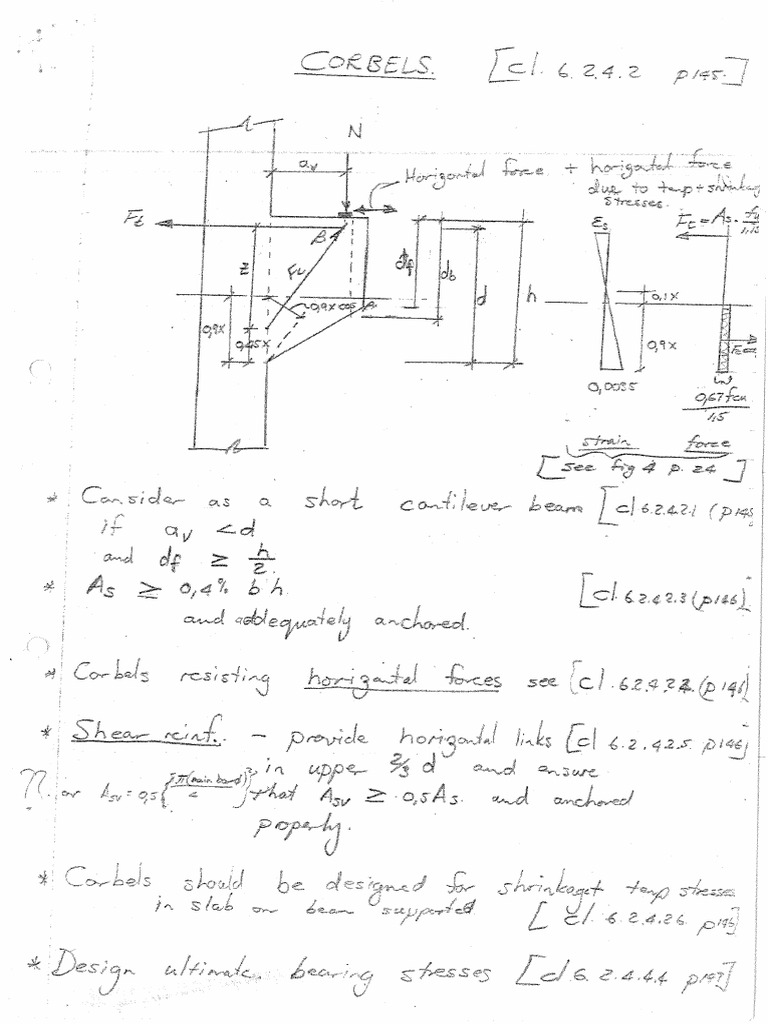 CORBELS. [cl. 6.2.4.2 p145.]
N
av
Horizontal force + horizontal force
due to temp + shrinkage
stresses.
Ft
B
Z
Fc
0,9x cos
A
0,9x
0,45x
df
db
d
h
εs
Ft = As.
0,1x
0,9x
0,0035
0,67fcu
1,5
strain force
[see fig 4 p. 24]
* Consider as a short cantilever beam [cl 6.2.4.2.1 (p145
if av < d
and df ≥ h/2.
* As ≥ 0,4% b h. [cl. 6.2.4.2.3 (p146)]
and addequately anchored.
* Corbels resisting horizontal forces see [cl. 6.2.4.2.4. (p146)]
* Shear reinf. - provide horizontal links [cl 6.2.4.2.5. p146]
in upper 2/3 d and ensure
?? or Asv = 0,5 { π(main bar)² / 4 } that Asv ≥ 0,5As. and anchored
properly.
* Corbels should be designed for shrinkage + temp stresses
in slab or beam supported [cl. 6.2.4.2.6. p146]
* Design ultimate bearing stresses [cl 6.2.4.4.4 p147]